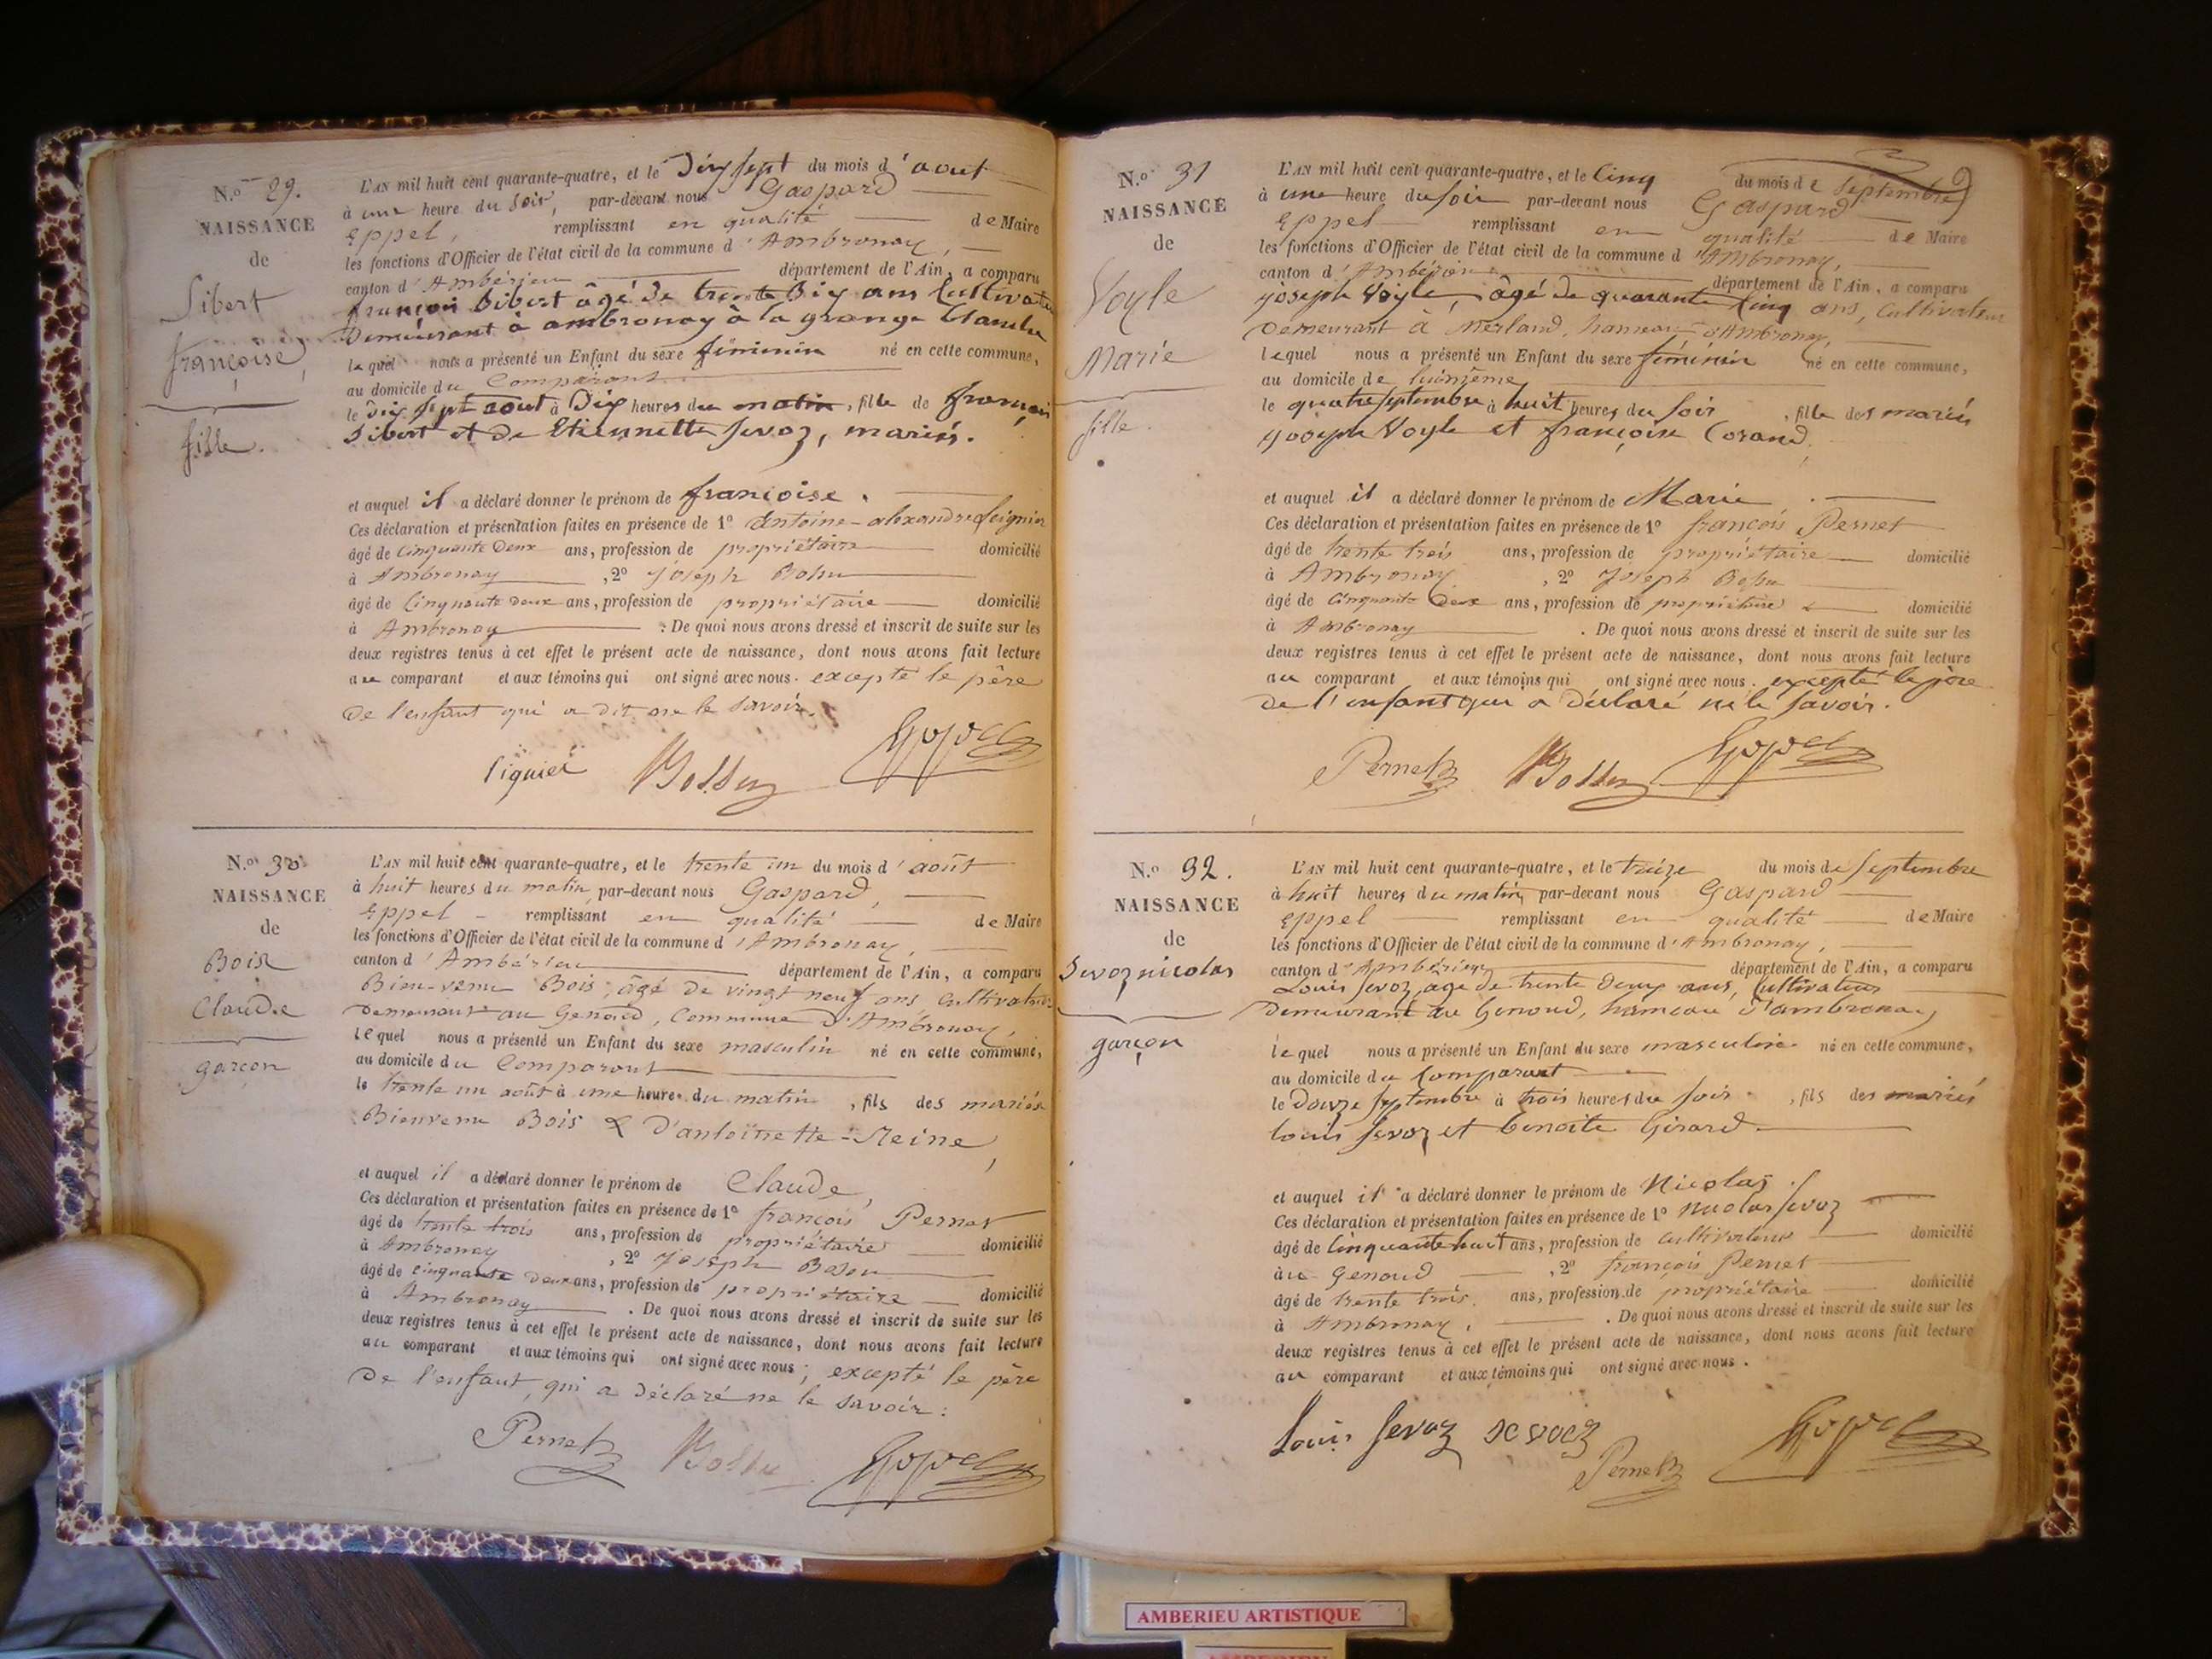 N.º 29.
NAISSANCE
de
Sibert
françoise,
fille.
L'AN mil huit cent quarante-quatre, et le Dix sept du mois d'aout
à une heure du soir, par-devant nous Gaspard
Eppel, remplissant en qualité de Maire
les fonctions d'Officier de l'état civil de la commune d'Ambronay,
canton d'Ambérieu département de l'Ain, a comparu
françois Sibert âgé de trente Six ans Cultivateur
Demeurant à ambronay à la grange
lequel nous a présenté un Enfant du sexe féminin né en cette commune,
au domicile du Comparant
le Dix sept aout à Dix heures du matin, fille de françois
Sibert et de Etiennette Sevoz, mariés.
et auquel il a déclaré donner le prénom de françoise.
Ces déclaration et présentation faites en présence de 1º Antoine-alexandre
âgé de Cinquante Deux ans, profession de propriétaire domicilié
à Ambronay, 2º Joseph Bossu
âgé de Cinquante deux ans, profession de propriétaire domicilié
à Ambronay. De quoi nous avons dressé et inscrit de suite sur les
deux registres tenus à cet effet le présent acte de naissance, dont nous avons fait lecture
au comparant et aux témoins qui ont signé avec nous. excepté le père
De l'enfant qui a dit ne le savoir.
Bossu
N.º 30
NAISSANCE
de
Bois
Claude
garçon
L'AN mil huit cent quarante-quatre, et le trente un du mois d'août
à huit heures du matin, par-devant nous Gaspard,
Eppel - remplissant en qualité de Maire
les fonctions d'Officier de l'état civil de la commune d'Ambronay,
canton d'Ambérieu département de l'Ain, a comparu
Bien-venu Bois, âgé de vingt neuf ans, Cultivateur
Demeurant au Genoud, Commune d'Ambronay,
lequel nous a présenté un Enfant du sexe masculin né en cette commune,
au domicile du Comparant
le trente un août à une heure du matin, fils des mariés
Bienvenu Bois & d'antoinette-Reine,
et auquel il a déclaré donner le prénom de Claude,
Ces déclaration et présentation faites en présence de 1º françois Pernet
âgé de trente trois ans, profession de propriétaire domicilié
à Ambronay, 2º Joseph Bossu
âgé de cinquante deux ans, profession de propriétaire domicilié
à Ambronay. De quoi nous avons dressé et inscrit de suite sur les
deux registres tenus à cet effet le présent acte de naissance, dont nous avons fait lecture
au comparant et aux témoins qui ont signé avec nous; excepté le père
De l'enfant, qui a déclaré ne le savoir:
Pernet Bossu
N.º 31
NAISSANCE
de
Voyle
Marie
fille.
L'AN mil huit cent quarante-quatre, et le Cinq du mois de Septembre
à une heure du soir par-devant nous Gaspard
Eppel remplissant en qualité de Maire
les fonctions d'Officier de l'état civil de la commune d'Ambronay,
canton d'Ambérieu département de l'Ain, a comparu
joseph Voyle, âgé de quarante Cinq ans, Cultivateur
Demeurant à Merland, hameau d'Ambronay,
lequel nous a présenté un Enfant du sexe féminin né en cette commune,
au domicile de luimême
le quatre septembre à huit heures du soir, fille des mariés
joseph Voyle et françoise Corand,
et auquel il a déclaré donner le prénom de Marie.
Ces déclaration et présentation faites en présence de 1º françois Pernet
âgé de trente trois ans, profession de propriétaire domicilié
à Ambronay, 2º Joseph Bossu
âgé de Cinquante deux ans, profession de propriétaire domicilié
à Ambronay. De quoi nous avons dressé et inscrit de suite sur les
deux registres tenus à cet effet le présent acte de naissance, dont nous avons fait lecture
au comparant et aux témoins qui ont signé avec nous. excepté le père
De l'enfant qui a déclaré ne le savoir.
Pernet Bossu
N.º 32.
NAISSANCE
de
Sevoz nicolas
garçon
L'AN mil huit cent quarante-quatre, et le treize du mois de Septembre
à huit heures du matin, par-devant nous Gaspard
Eppel remplissant en qualité de Maire
les fonctions d'Officier de l'état civil de la commune d'Ambronay,
canton d'Ambérieu département de l'Ain, a comparu
Louis Sevoz, age de trente Deux ans, Cultivateur
Demeurant au Genoud, hameau d'ambronay
lequel nous a présenté un Enfant du sexe masculin né en cette commune,
au domicile du Comparant
le Douze Septembre à trois heures du soir, fils des mariés
louis Sevoz et benoite Girard
et auquel il a déclaré donner le prénom de Nicolas.
Ces déclaration et présentation faites en présence de 1º nicolas Sevoz
âgé de Cinquante huit ans, profession de cultivateur domicilié
au Genoud, 2º françois Pernet
âgé de trente trois. ans, profession de propriétaire domicilié
à Ambronay,. De quoi nous avons dressé et inscrit de suite sur les
deux registres tenus à cet effet le présent acte de naissance, dont nous avons fait lecture
au comparant et aux témoins qui ont signé avec nous.
Louis Sevoz sevoz
Pernet
AMBERIEU ARTISTIQUE